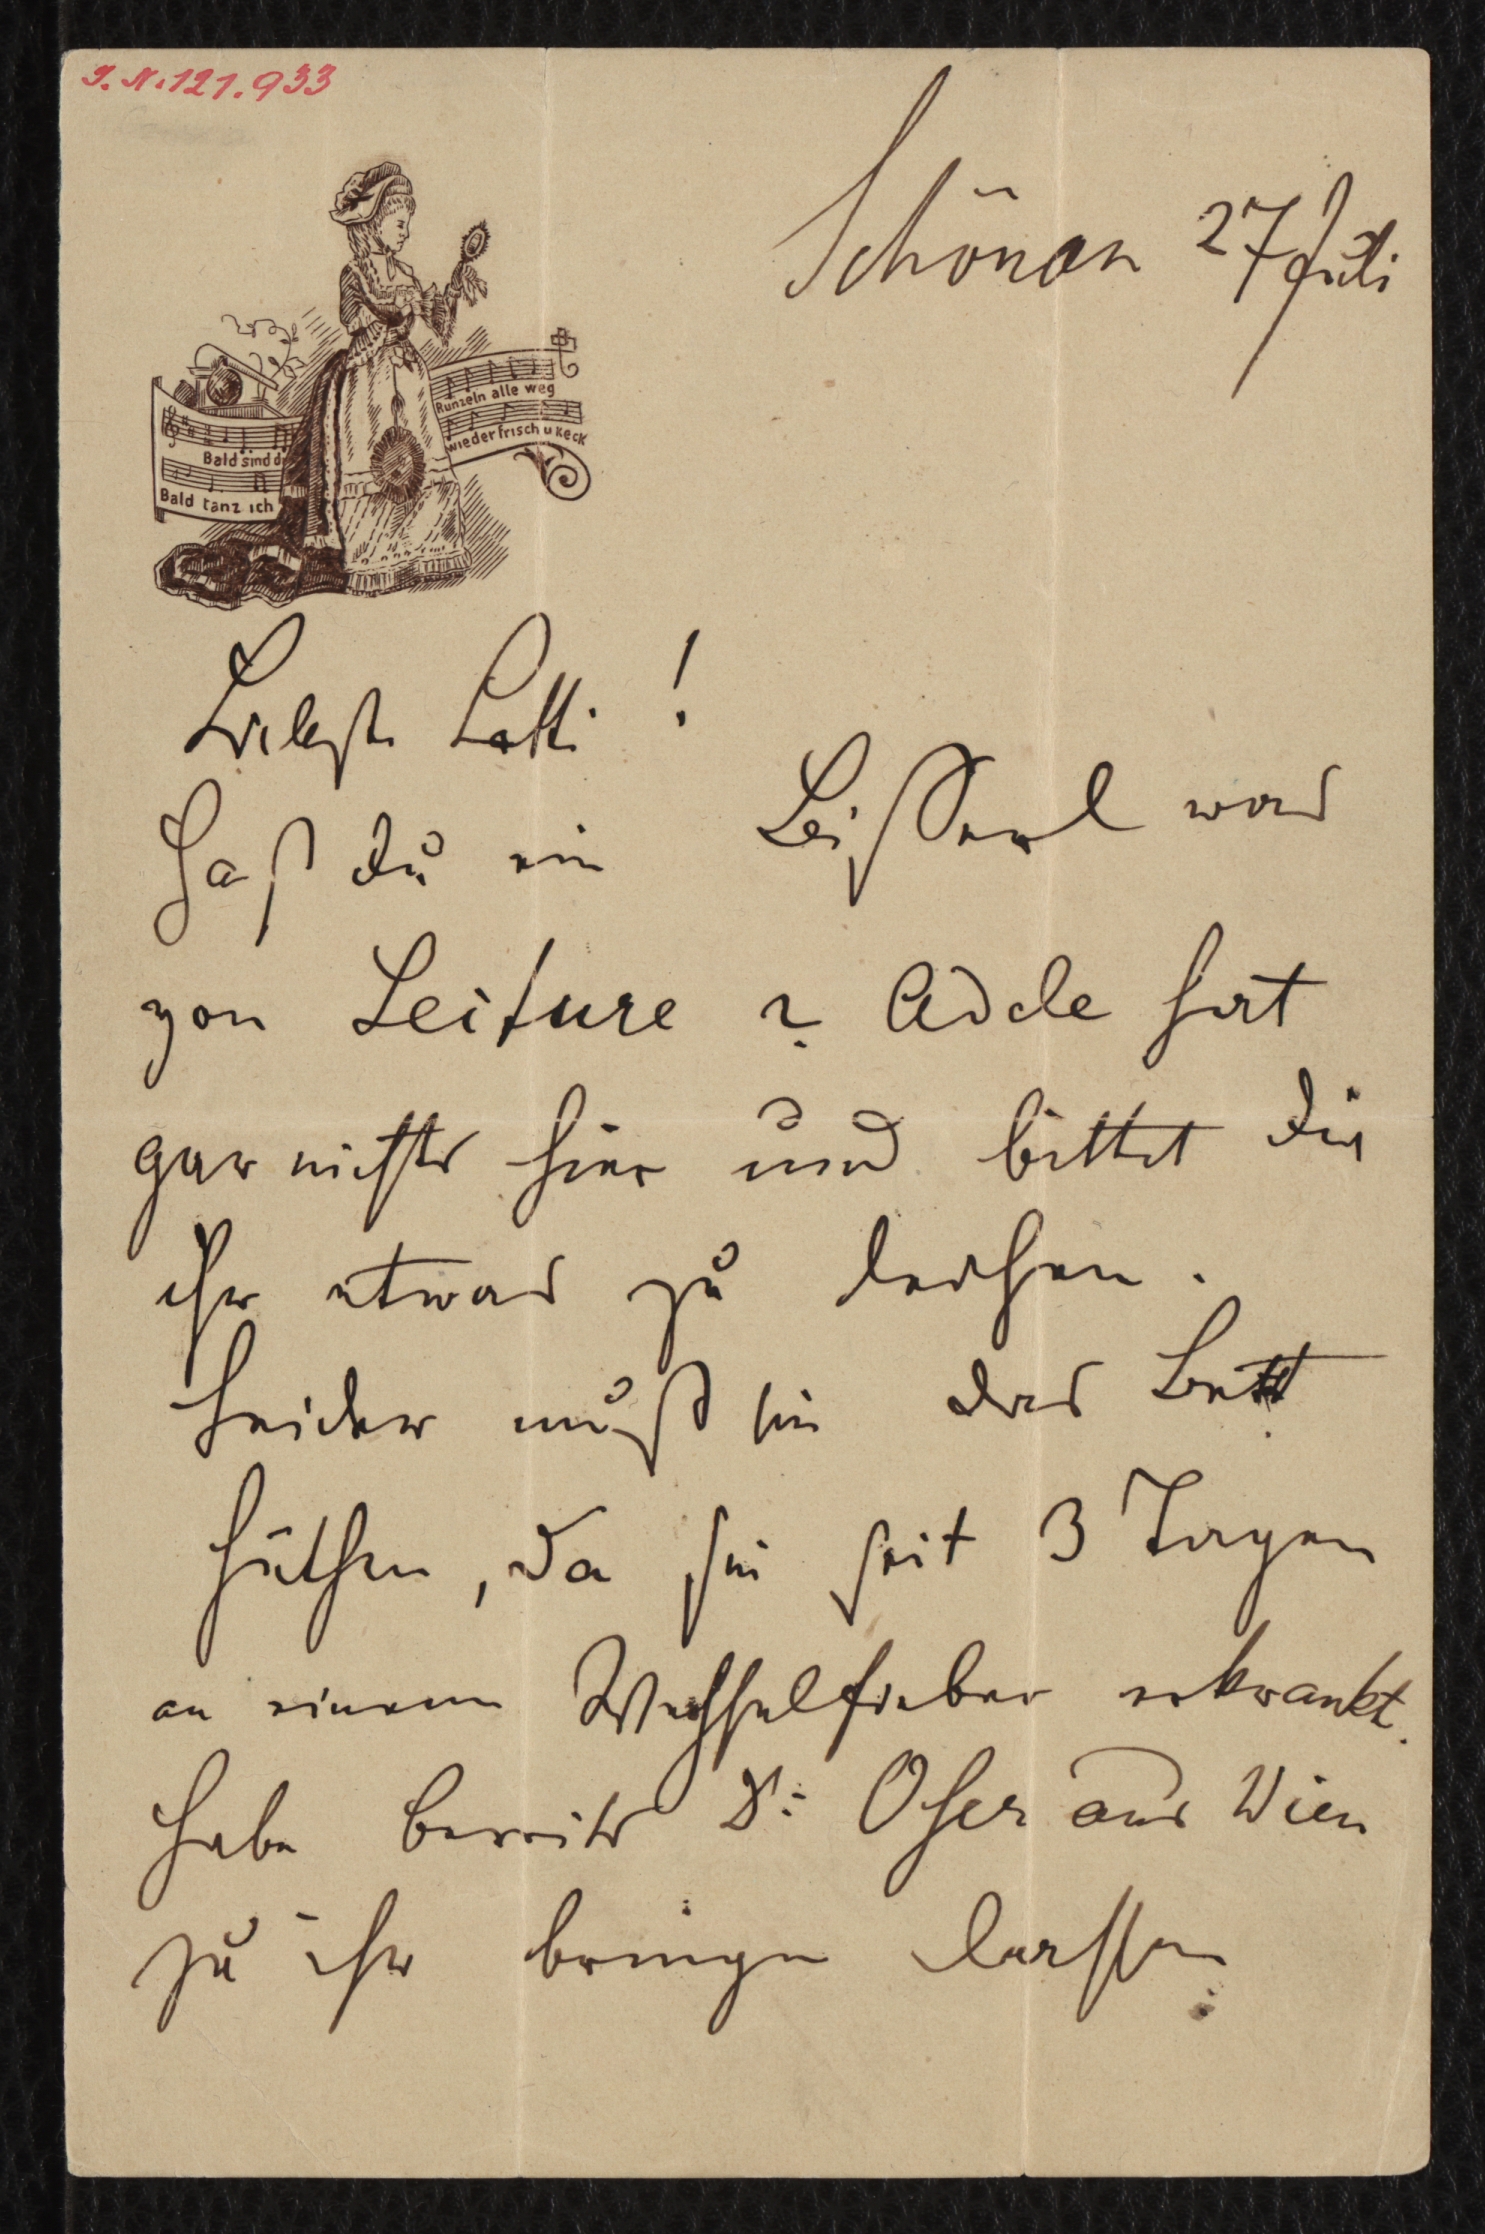 I. N. 121.933
Schönau 27 Juli
Bald sind d
Runzeln alle weg
Bald tanz ich
wieder frisch u keck
Liebste Lotti!
Hast du ein Bisserl was
von Leiture? Adele hat
gar nichts hier und bittet dich
ihr etwas zu leihen.
Leider muß sie das Bett
hüthen, da sie seit 3 Tagen
an einem Wechselfieber erkrankt.
Habe bereits Dr: Oser aus Wien
zu ihr bringen lassen.